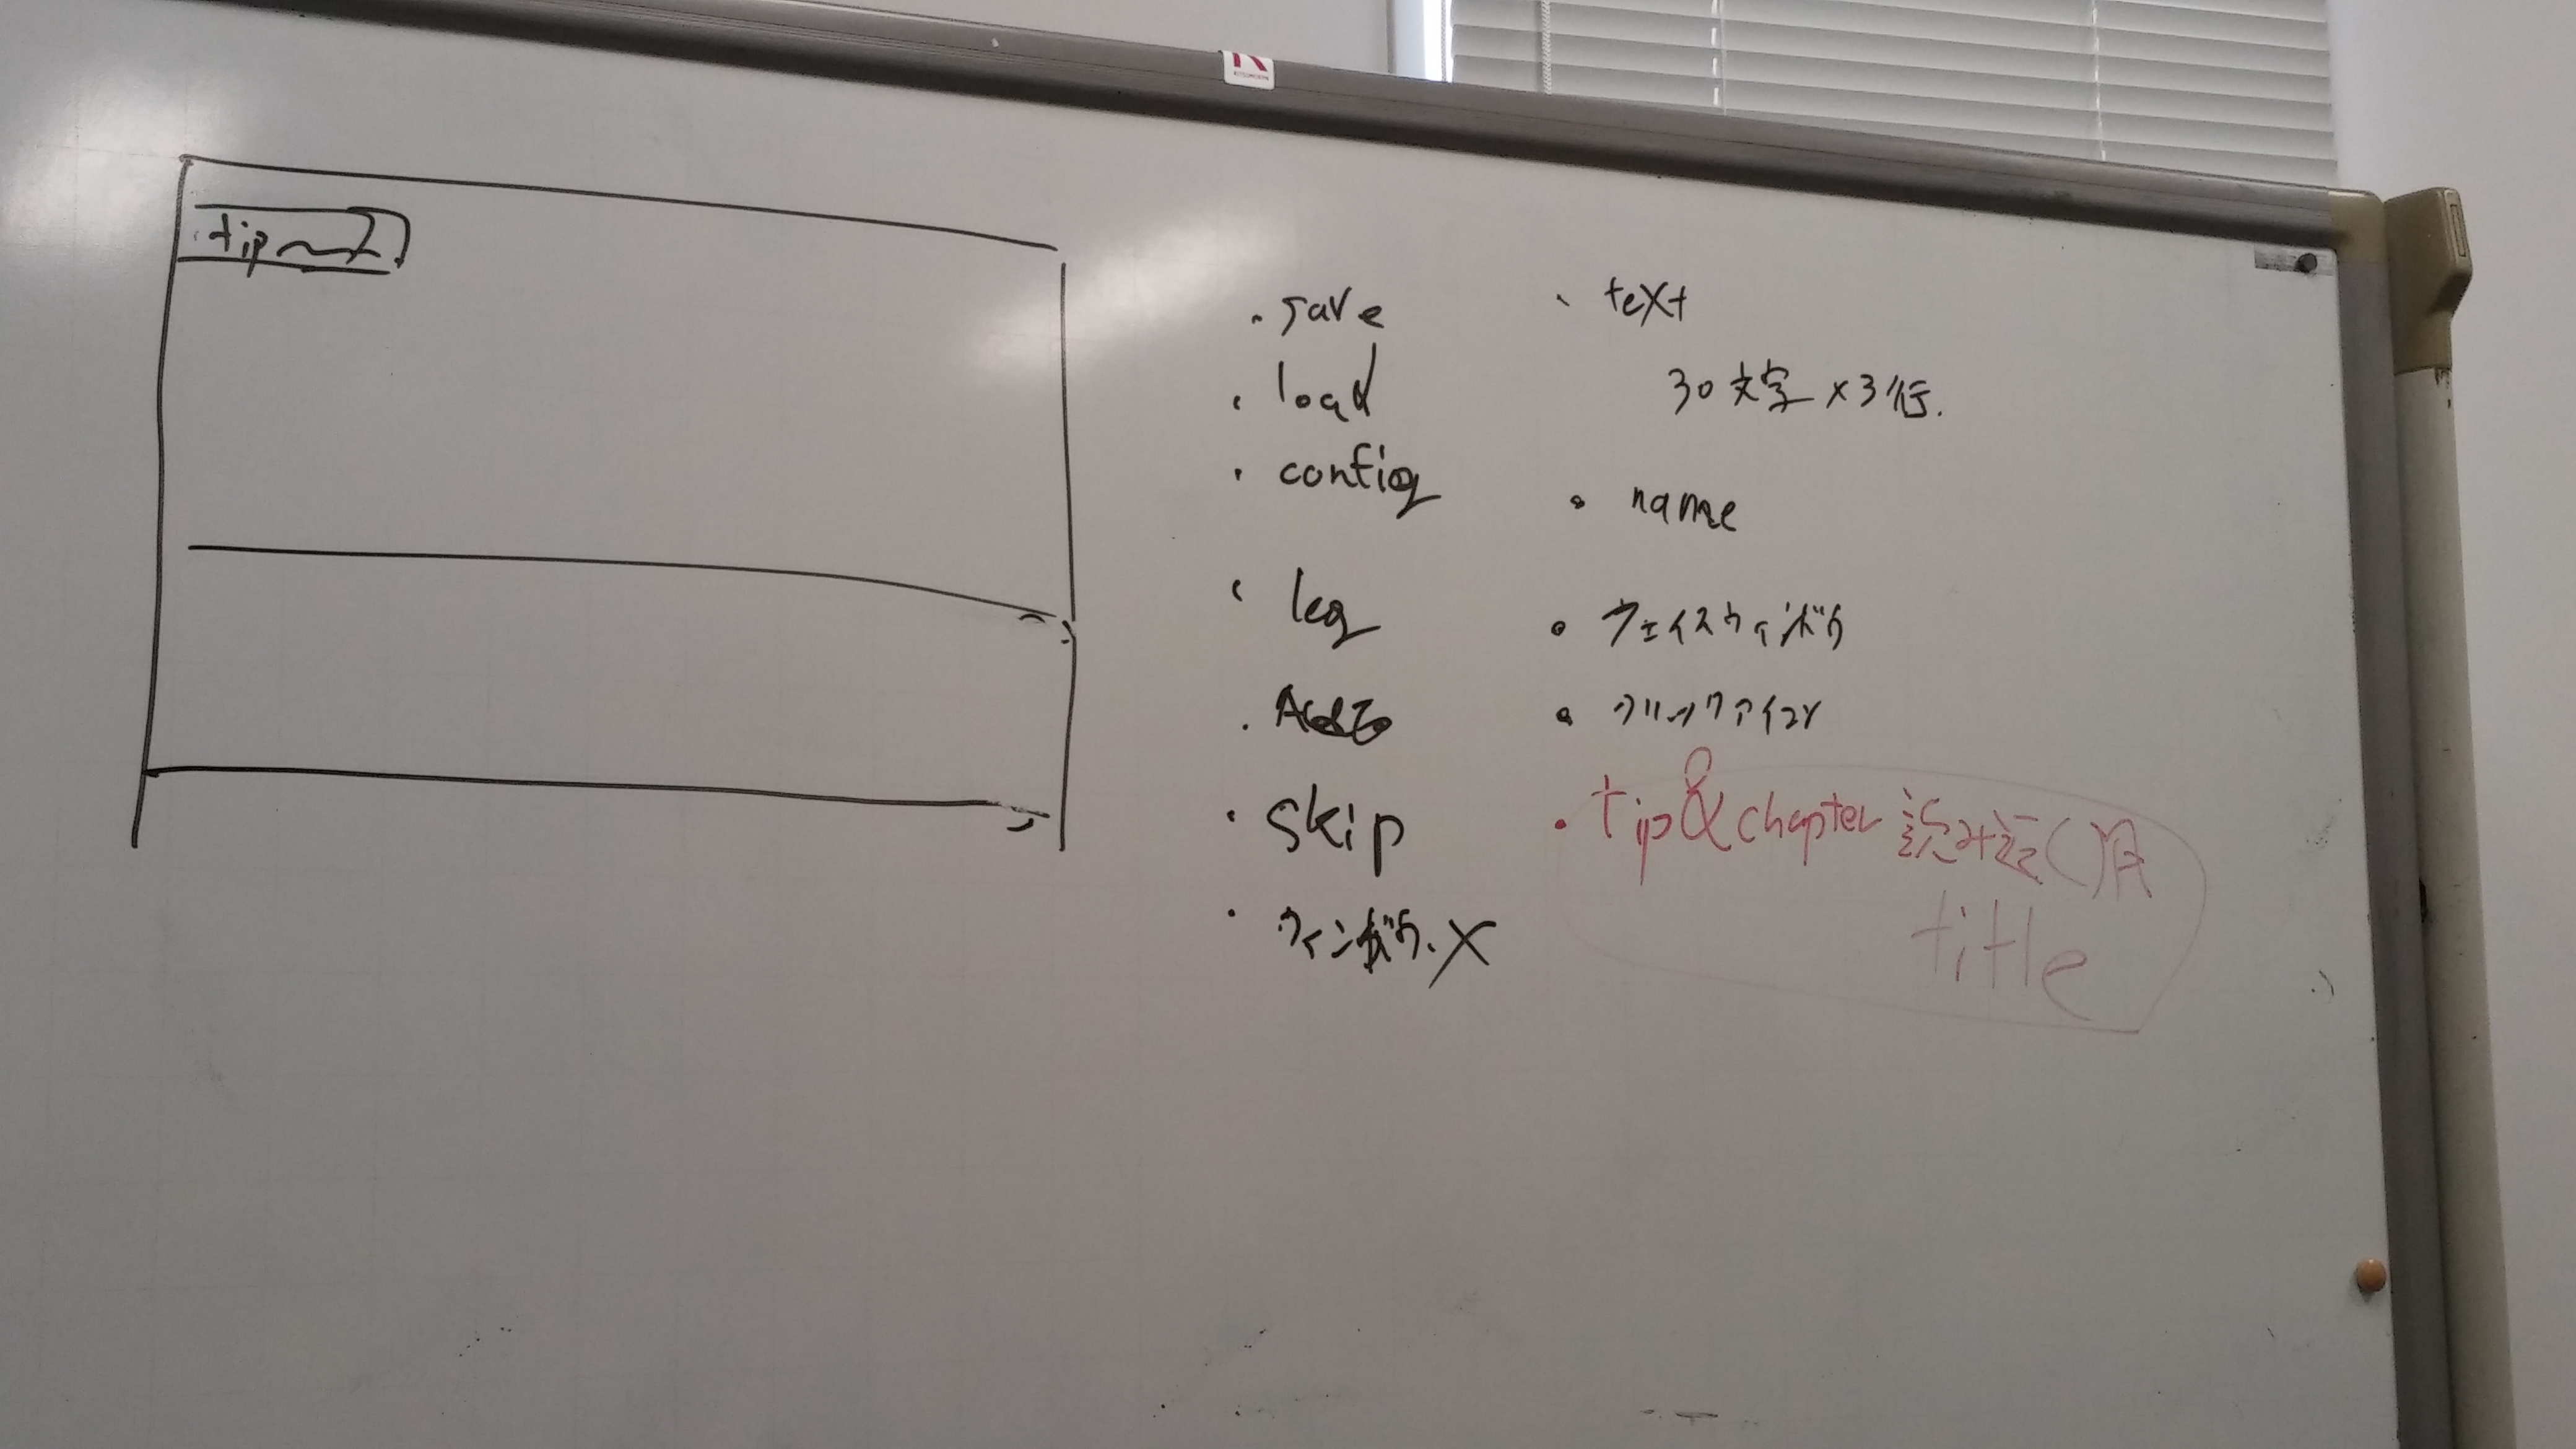 tip
・save
・load
・config
・log
・Auto
・skip
・ウィンドウ、×
・text
30文字×3行.
・name
・フェイスウィンドウ
・クリックアイコン
・tip&chapter 読み返し用
title